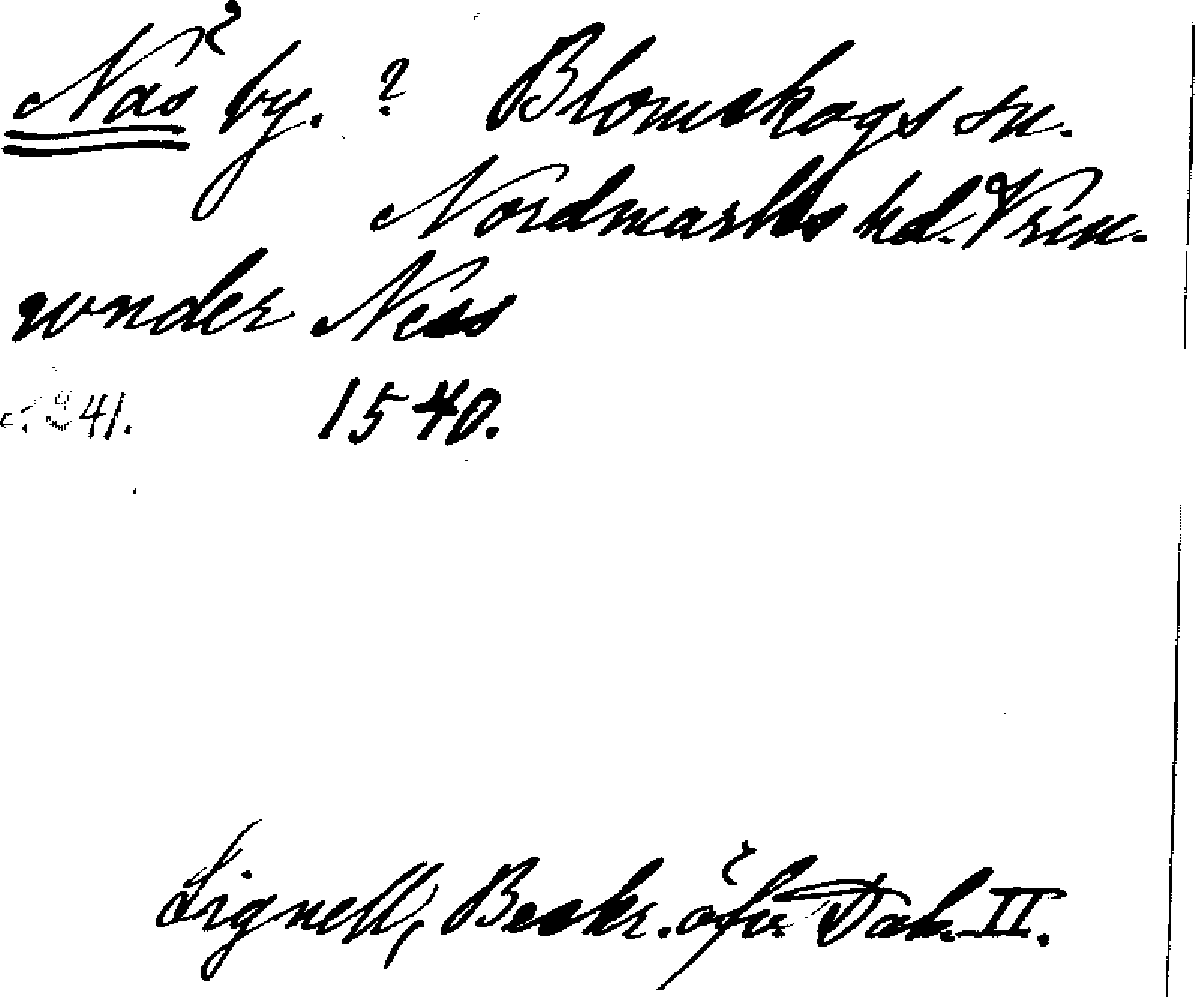 Näs by. ? Blomskogs sn.
Nordmarks hd. Vrm.
wnder Ness
s. 241. 1540.
Lignell, Beskr. öfv. Dal. II.